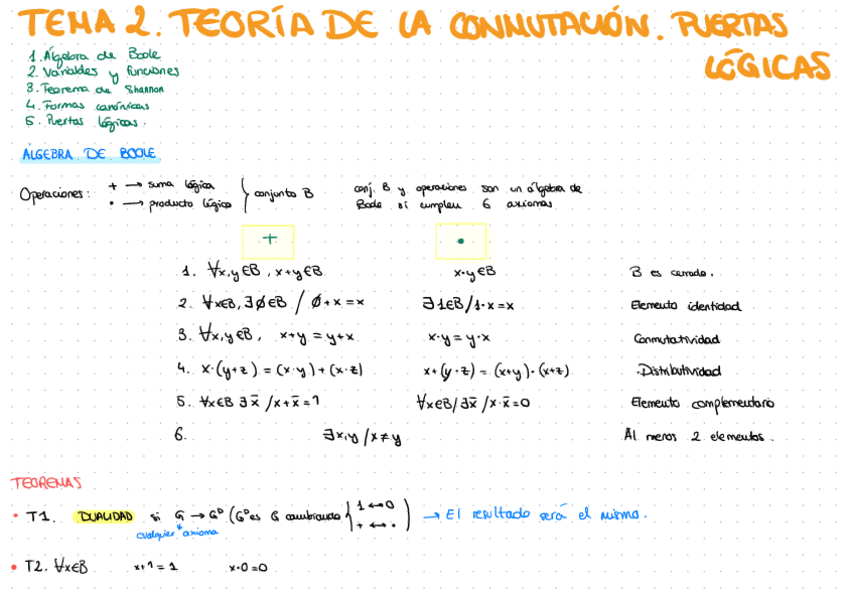 TEMA 2. TEORÍA DE LA CONMUTACIÓN. PUERTAS LÓGICAS
1. Álgebra de Boole
2. Variables y funciones
3. Teorema de Shannon
4. Formas canónicas
5. Puertas lógicas.
ÁLGEBRA DE BOOLE
Operaciones: + → suma lógica
• → producto lógico } conjunto B
conj. B y operaciones son un álgebra de
Boole si cumplen 6 axiomas
+ •
1. ∀x,y∈B, x+y∈B x·y∈B B es cerrado.
2. ∀x∈B, ∃∅∈B / ∅+x=x ∃1∈B/1·x=x Elemento identidad
3. ∀x,y∈B, x+y=y+x x·y=y·x Conmutatividad
4. x·(y+z)=(x·y)+(x·z) x+(y·z)=(x+y)·(x+z) Distributividad
5. ∀x∈B ∃x̄ /x+x̄=1 ∀x∈B/∃x̄ /x·x̄=0 Elemento complementario
6. ∃x,y /x≠y Al menos 2 elementos.
TEOREMAS
• T1. DUALIDAD si G → Gᴰ (Gᴰ es G cambiando { 1↔0
+ ↔ • ) → El resultado será el mismo.
cualquier axioma
• T2. ∀x∈B x+1=1 x·0=0